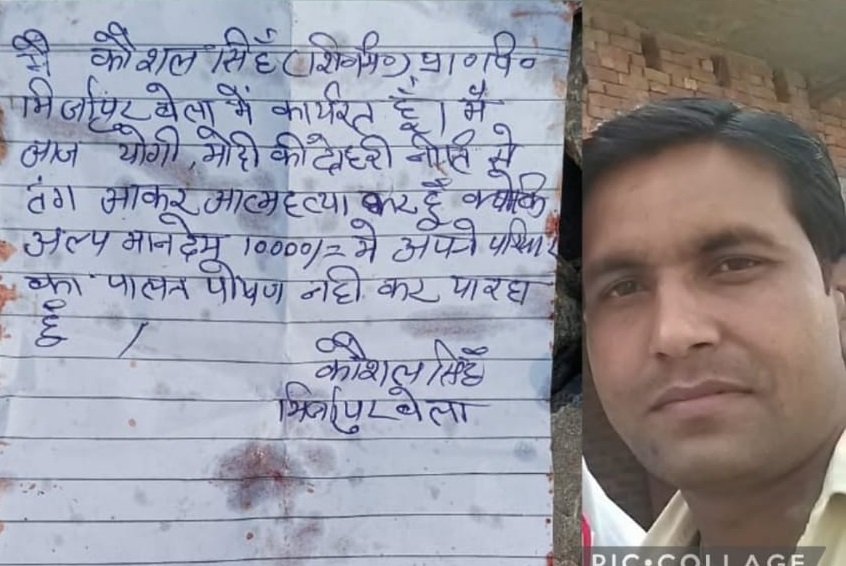 मै कौशल सिहँ (शि०मि०) प्रा०वि०
मिर्जापुर बेला में कार्यरत हूँ। मै
आज योगी, मोदी की दोहरी नीति से
तंग आकर आत्महत्या कर हूँ क्योकि
अल्प मानदेय 10000/= मे अपने परिवार
का पालन पोषण नही कर पा रहा
हूँ /
कौशल सिहँ
मिर्जापुर बेला
PIC•COLLAGE